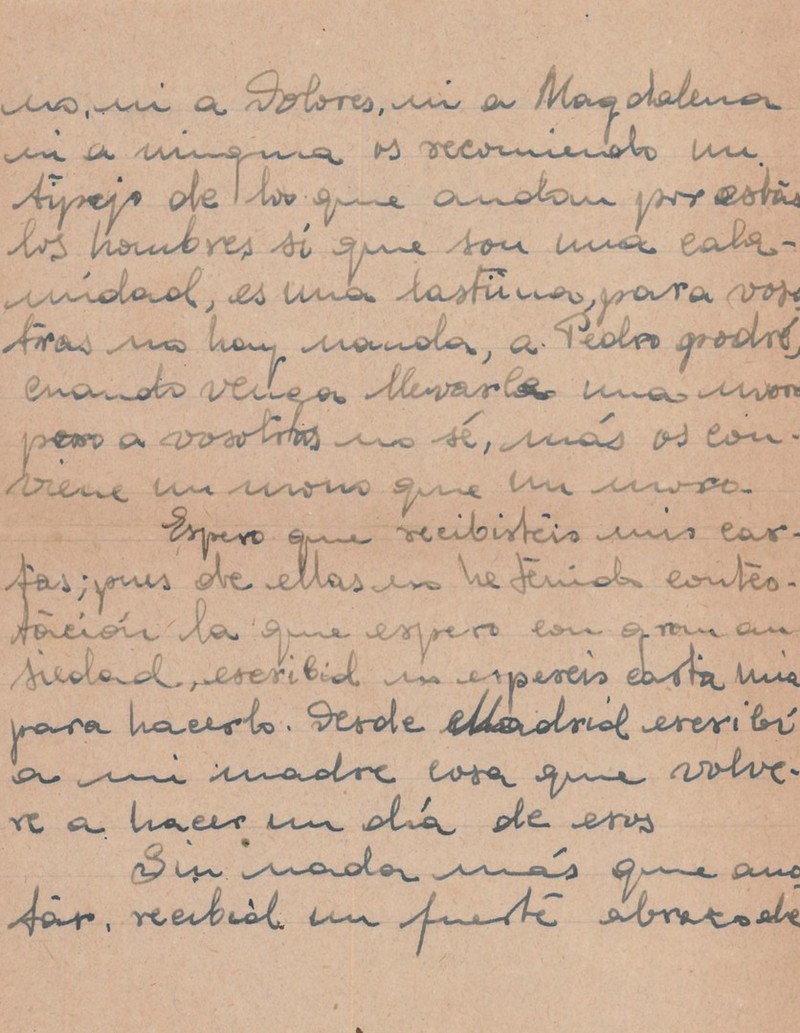 no, ni a Dolores, ni a Magdalena
ni a ninguna os recomiendo un
tipejo de los que andan por estás
los hombres si que son una cala-
midad, es una lastima, para voso
tras no hay nanda, a Pedro podré,
cuando venga llevarle una mora
pero a vosotras no sé, más os con-
viene un mono que un moro.
Espero que recibistéis mis car-
tas; pues de ellas no he tenido contes-
tación la que espero con gran an
siedad, escribid no espereis carta mia
para hacerlo. Desde Madrid escribí
a mi madre cosa que volve-
re a hacer un día de esos
Sin nada más que ano
tár, recibid un fuerté abrazo de